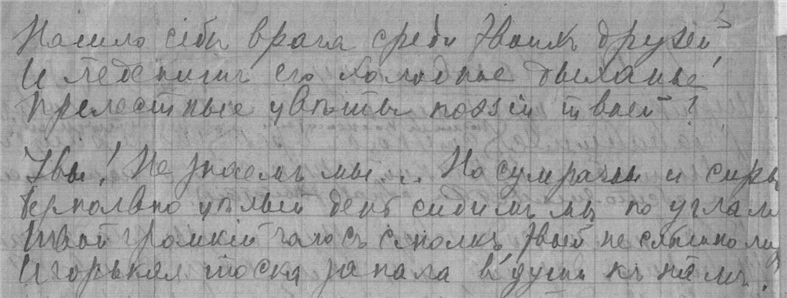 Нашло себѣ врага среди твоихъ друзей
И леденитъ его холодное дыханье
Прелестные цвѣты поэзiи твоей?
Увы! Не знаемъ мы... Но сумрачны и сиры
унылый день сидимъ мы по угламъ
Твой громкiй голосъ смолкъ твоей не слышно
И горькая тоска запала въ душы къ намъ.